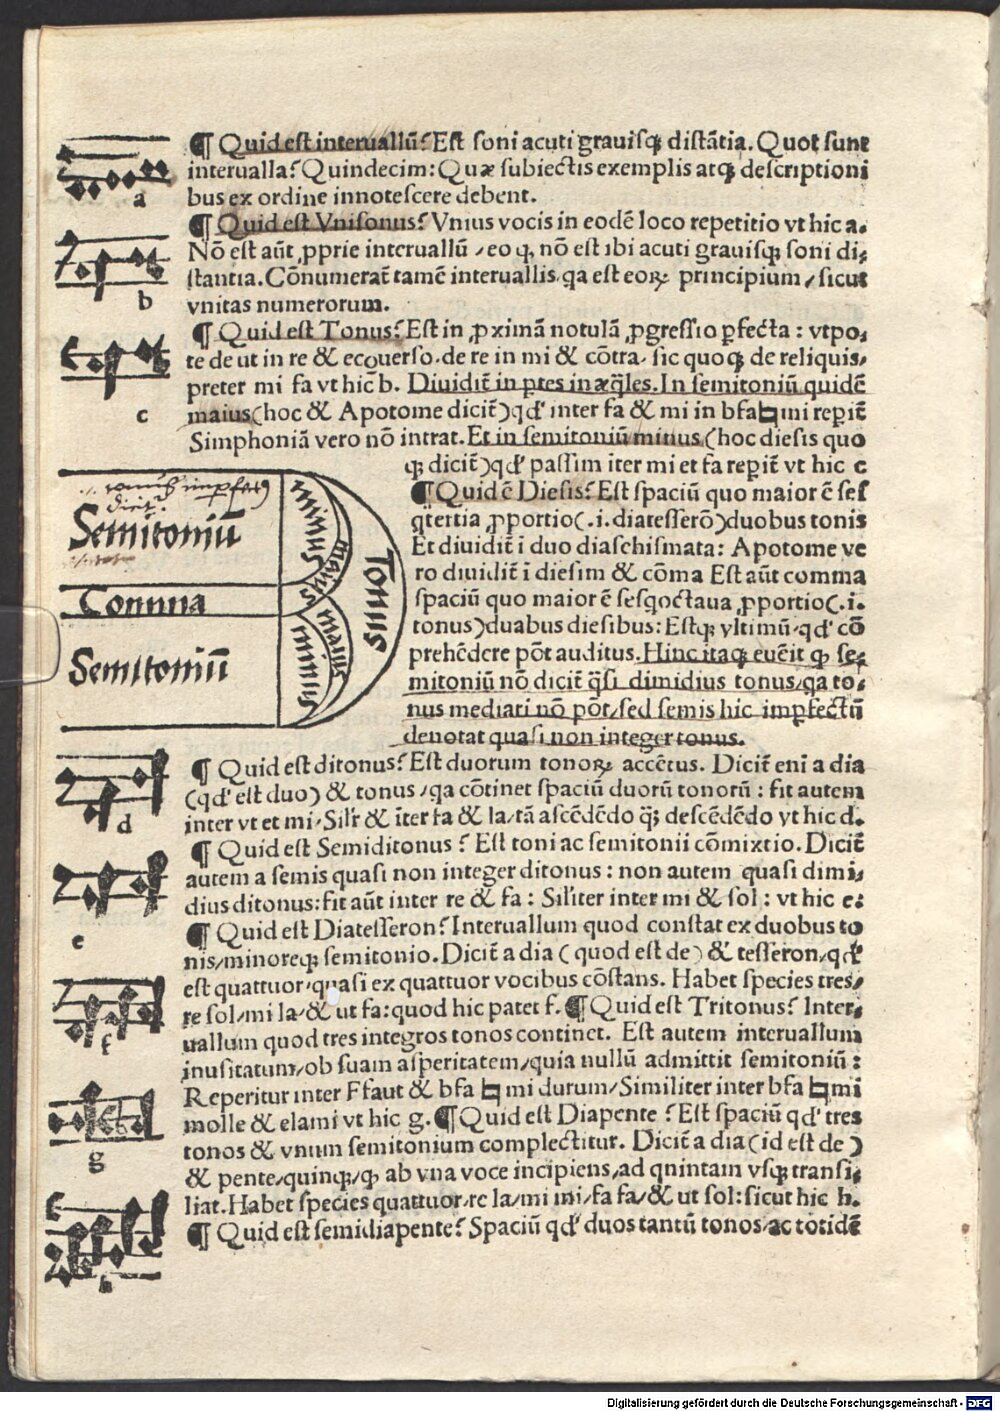 ¶ Quid est interuallū? Est soni acuti grauisqꝫ distātia. Quot sunt
interualla? Quindecim: Quæ subiectis exemplis atqꝫ descriptioni
bus ex ordine innotescere debent.
a
¶ Quid est Vnisonus? Vnius vocis in eodē loco repetitio vt hic a.
Nō est aūt ꝓprie interuallū / eo ꝙ nō est ibi acuti grauisqꝫ soni di⸗
stantia. Cōnumerat̄ tamē interuallis, qa est eoꝝ principium / sicut
vnitas numerorum.
b
¶ Quid est Tonus? Est in ꝓximā notulā ꝓgressio ꝑfecta : vtpo⸗
te de ut in re & ecouerso. de re in mi & cōtra / sic quoqꝫ de reliquis,
preter mi fa vt hic b. Diuidit̄ in ꝑtes inæq̄les. In semitoniū quidē
maius (hoc & Apotome dicit̄) qd' inter fa & mi in bfa♮mi reꝑit̄
Simphoniā vero nō intrat. Et in semitoniū minus (hoc diesis quo
qꝫ dicit̄) qd' passim iter mi et fa reꝑit̄ vt hic c
c
¶ Quid ē Diesis? Est spaciū quo maior ē ses
q̄tertia ꝓportio (.i. diatesserō) duobus tonis
Et diuidit̄ i duo diaschismata: Apotome ve
ro diuidit̄ i diesim & cōma Est aūt comma
spaciū quo maior ē sesq̄octaua ꝓportio (.i.
tonus) duabus diesibus: Estqꝫ vltimū / qd' cō
prehēdere pōt auditus. Hinc itaqꝫ euēit ꝙ se⸗
mitoniū nō dicit̄ q̄si dimidius tonus / qa to⸗
nus mediari nō pōt / sed semis hic imꝑfectū
denotat quasi non integer tonus.
dict.
Semitoniū
Comma
Semitoniū
minus
maius
maius
minus
Tonus
¶ Quid est ditonus? Est duorum tonoꝝ accētus. Dicit̄ eni a dia
(qd' est duo) & tonus / qa cōtinet spaciū duorū tonorū : fit autem
inter vt et mi / Sil'r & iter fa & la / tā ascēdēdo q̄ꝫ descēdēdo vt hic d.
d
¶ Quid est Semiditonus ? Est toni ac semitonii cōmixtio. Dicit̄
autem a semis quasi non integer ditonus : non autem quasi dimi⸗
dius ditonus: fit aūt inter re & fa : Sil'iter inter mi & sol : vt hic e:
e
¶ Quid est Diatesseron? Interuallum quod constat ex duobus to
nis / minoreqꝫ semitonio. Dicit̄ a dia ( quod est de ) & tesseron / qd'
est quattuor / quasi ex quattuor vocibus cōstans. Habet species tres /
re sol / mi la / & ut fa: quod hic patet f. ¶ Quid est Tritonus? Inter⸗
uallum quod tres integros tonos continet. Est autem interuallum
inusitatum / ob suam asperitatem / quia nullū admittit semitoniū :
f
Reperitur inter Ffaut & bfa ♮ mi durum / Similiter inter bfa ♮mi
molle & elami vt hic g. ¶ Quid est Diapente ? Est spaciū qd' tres
tonos & vnum semitonium complectitur. Dicit̄ a dia (id est de )
& pente / quinqꝫ / ꝙ ab vna voce incipiens / ad qnintam vsqꝫ transi⸗
liat. Habet species quattuor / re la / mi mi / fa fa / & ut sol: sicut hic h.
g
¶ Quid est semidiapente? Spaciū qd' duos tantū tonos / ac totidē
h
Digitalisierung gefördert durch die Deutsche Forschungsgemeinschaft - DFG